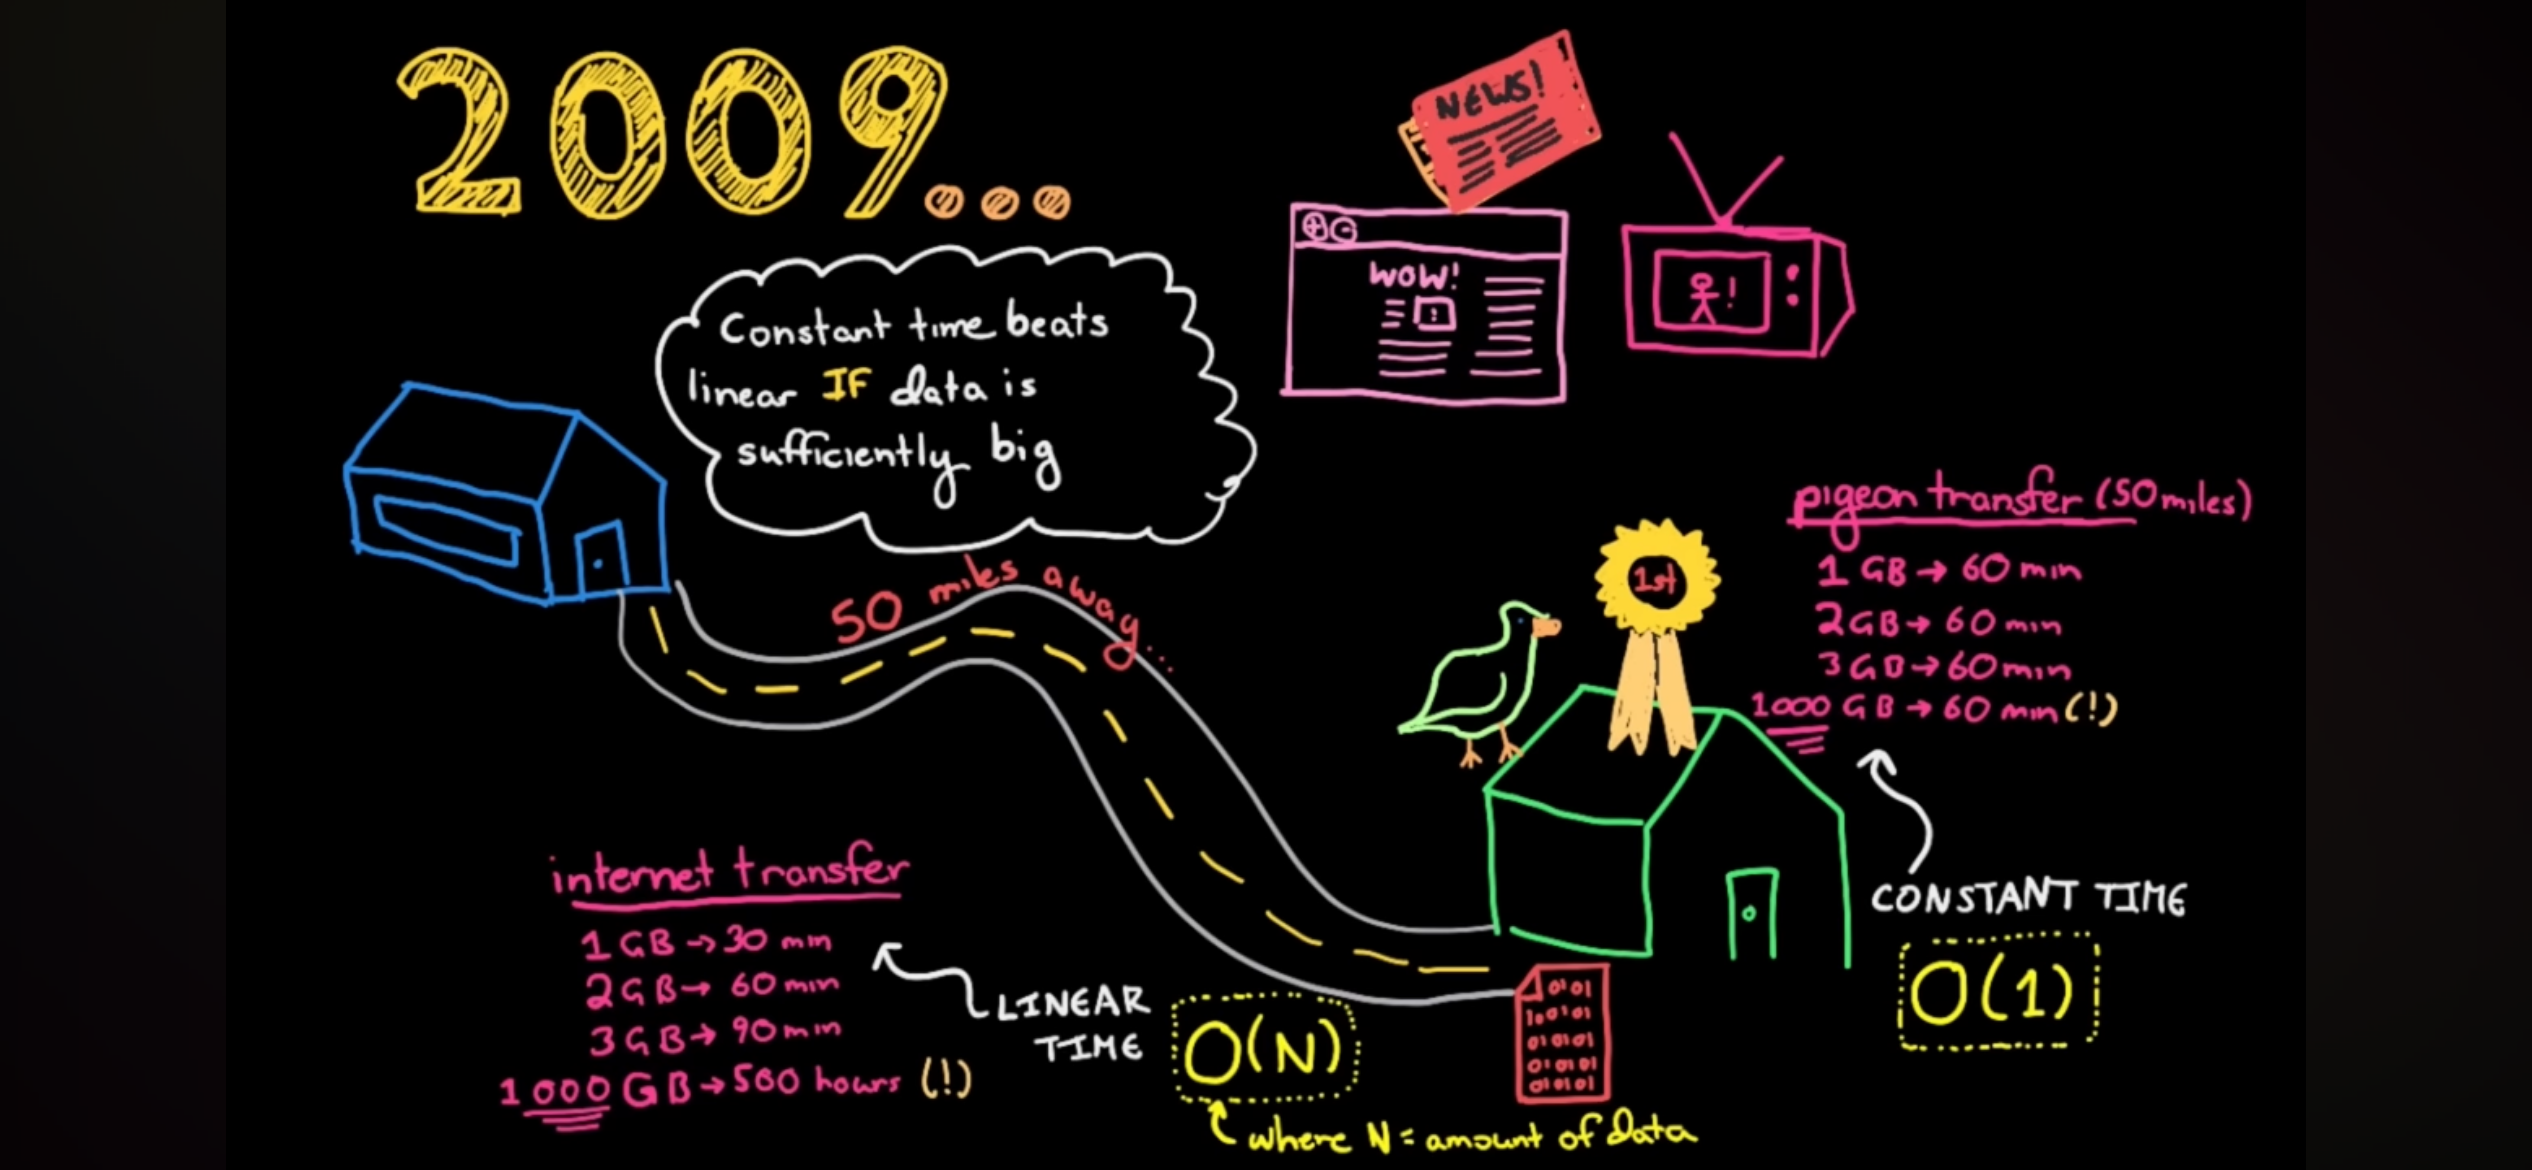 2009...
NEWS!
WOW!
!
!
Constant time beats
linear IF data is
sufficiently big
50 miles away...
1st
pigeon transfer (50 miles)
1 GB → 60 min
2 GB → 60 min
3 GB → 60 min
1000 GB → 60 min (!)
CONSTANT TIME
O(1)
internet transfer
1 GB → 30 min
2 GB → 60 min
3 GB → 90 min
1000 GB → 500 hours (!)
LINEAR
TIME
O(N)
where N = amount of data
0101
100101
010101
010101
010101